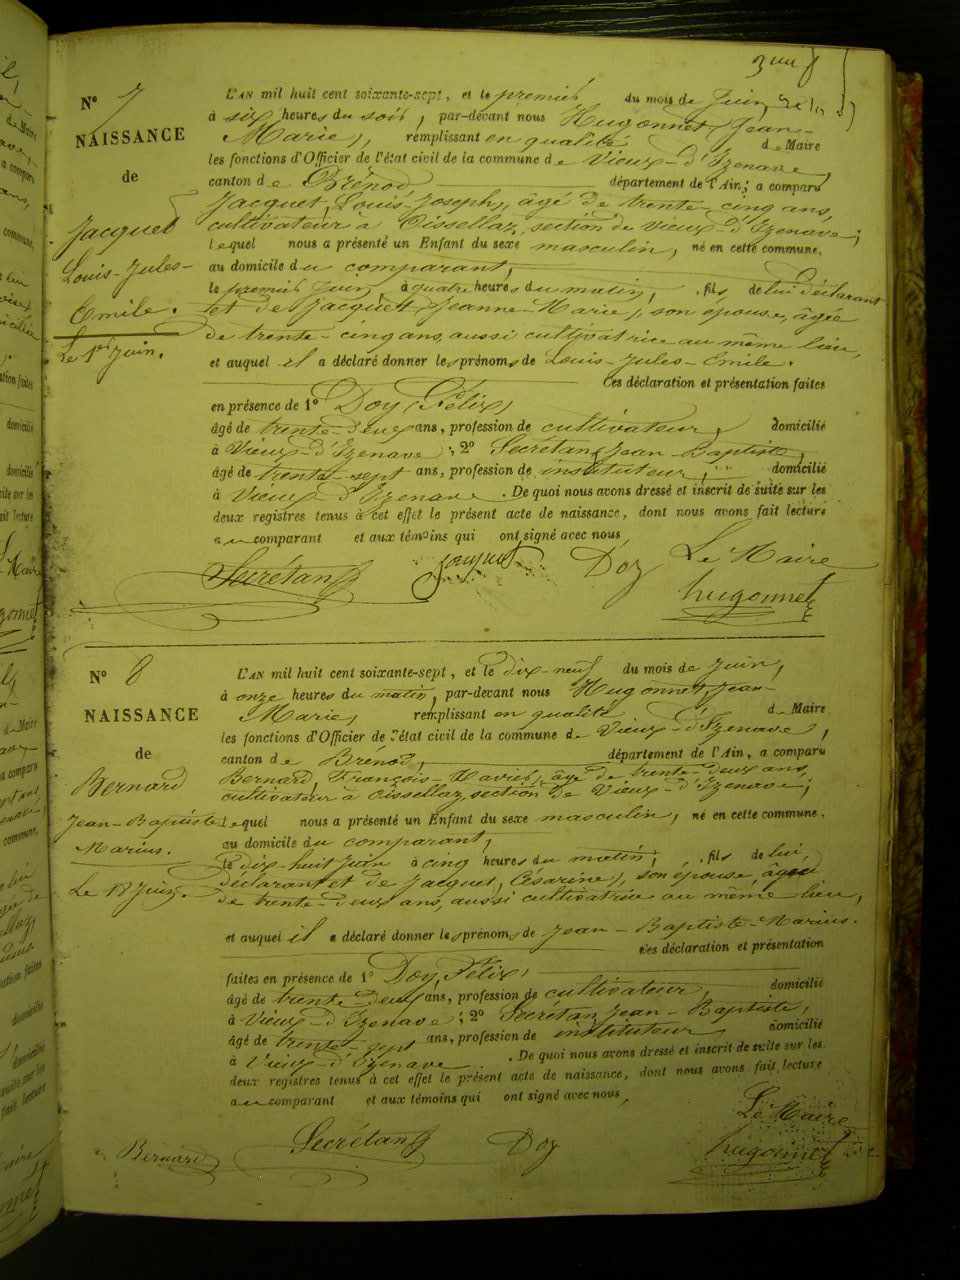 N° 7
NAISSANCE
de
Jacquet
Louis-Jules-
Emile.
Le 1er Juin.
L'AN mil huit cent soixante-sept, et le premier du mois de Juin,
à six heures du soir, par-devant nous Hugonnet, Jean-
Marie, remplissant en qualité de Maire
les fonctions d'Officier de l'état civil de la commune de Vieux-d'Izenave,
canton de Brénod département de l'Ain, a comparu
Jacquet, Louis-Joseph, âgé de trente-cinq ans,
cultivateur à Oissellaz, section de Vieux-d'Izenave;
lequel nous a présenté un Enfant du sexe masculin, né en cette commune,
au domicile du comparant,
le premier Juin, à quatre heures du matin, fils de lui déclarant
et de Jacquet Jeanne-Marie, son épouse, âgée
de trente-cinq ans, aussi cultivatrice au même lieu,
et auquel il a déclaré donner les prénoms de Louis-Jules-Emile.
Ces déclaration et présentation faites
en présence de 1° Doy, Félix,
âgé de trente-deux ans, profession de cultivateur, domicilié
à Vieux-d'Izenave; 2° Secrétan, Jean-Baptiste,
âgé de trente-sept ans, profession de instituteur, domicilié
à Vieux d'Izenave. De quoi nous avons dressé et inscrit de suite sur les
deux registres tenus à cet effet le présent acte de naissance, dont nous avons fait lecture
au comparant et aux témoins qui ont signé avec nous
Secrétan Jacquet Doy Le Maire
Hugonnet
N° 8
NAISSANCE
de
Bernard
Jean-Baptiste-
Marius.
Le 18 Juin.
L'AN mil huit cent soixante-sept, et le dix-neuf du mois de Juin,
à onze heures du matin, par-devant nous Hugonnet, Jean-
Marie, remplissant en qualité de Maire
les fonctions d'Officier de l'état civil de la commune de Vieux-d'Izenave,
canton de Brénod, département de l'Ain, a comparu
Bernard, François-Xavier, âgé de trente-deux ans,
cultivateur à Oissellaz, section de Vieux-d'Izenave;
lequel nous a présenté un Enfant du sexe masculin, né en cette commune,
au domicile du comparant,
le dix-huit Juin à cinq heures du matin, fils de lui,
déclarant et de Jacquet, Césarine, son épouse, âgée
de trente-deux ans, aussi cultivatrice au même lieu,
et auquel il a déclaré donner les prénoms de Jean-Baptiste-Marius.
Ces déclaration et présentation
faites en présence de 1° Doy, Félix,
âgé de trente-deux ans, profession de cultivateur, domicilié
à Vieux-d'Izenave; 2° Secrétan, Jean-Baptiste,
âgé de trente-sept ans, profession de instituteur domicilié
à Vieux-d'Izenave. De quoi nous avons dressé et inscrit de suite sur les
deux registres tenus à cet effet le présent acte de naissance, dont nous avons fait lecture
au comparant et aux témoins qui ont signé avec nous,
Le Maire
Bernard Secrétan Doy Hugonnet